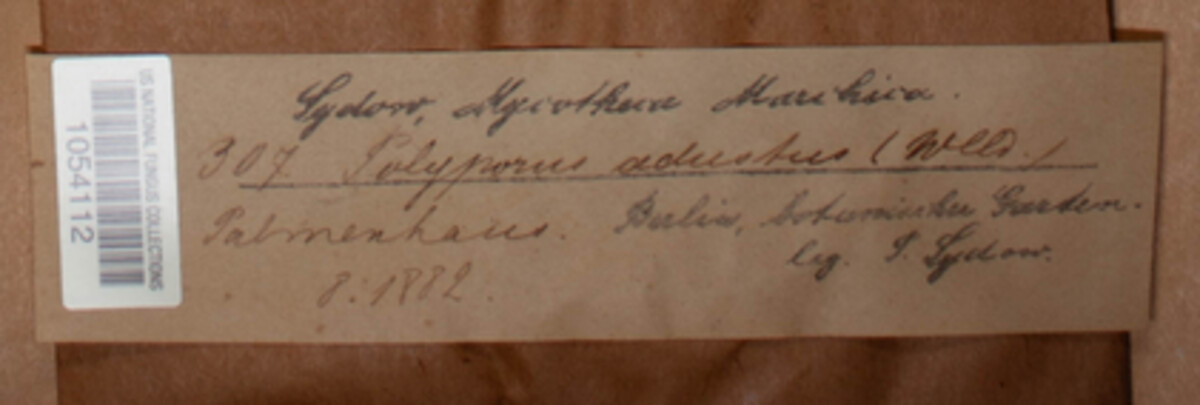 US NATIONAL FUNGUS COLLECTIONS
1054112
Sydow, Mycotheca Marchica.
307. Polyporus adustus (Wlld.)
Palmenhaus. Berlin, botanischer Garten.
8. 1882. leg. P. Sydow.